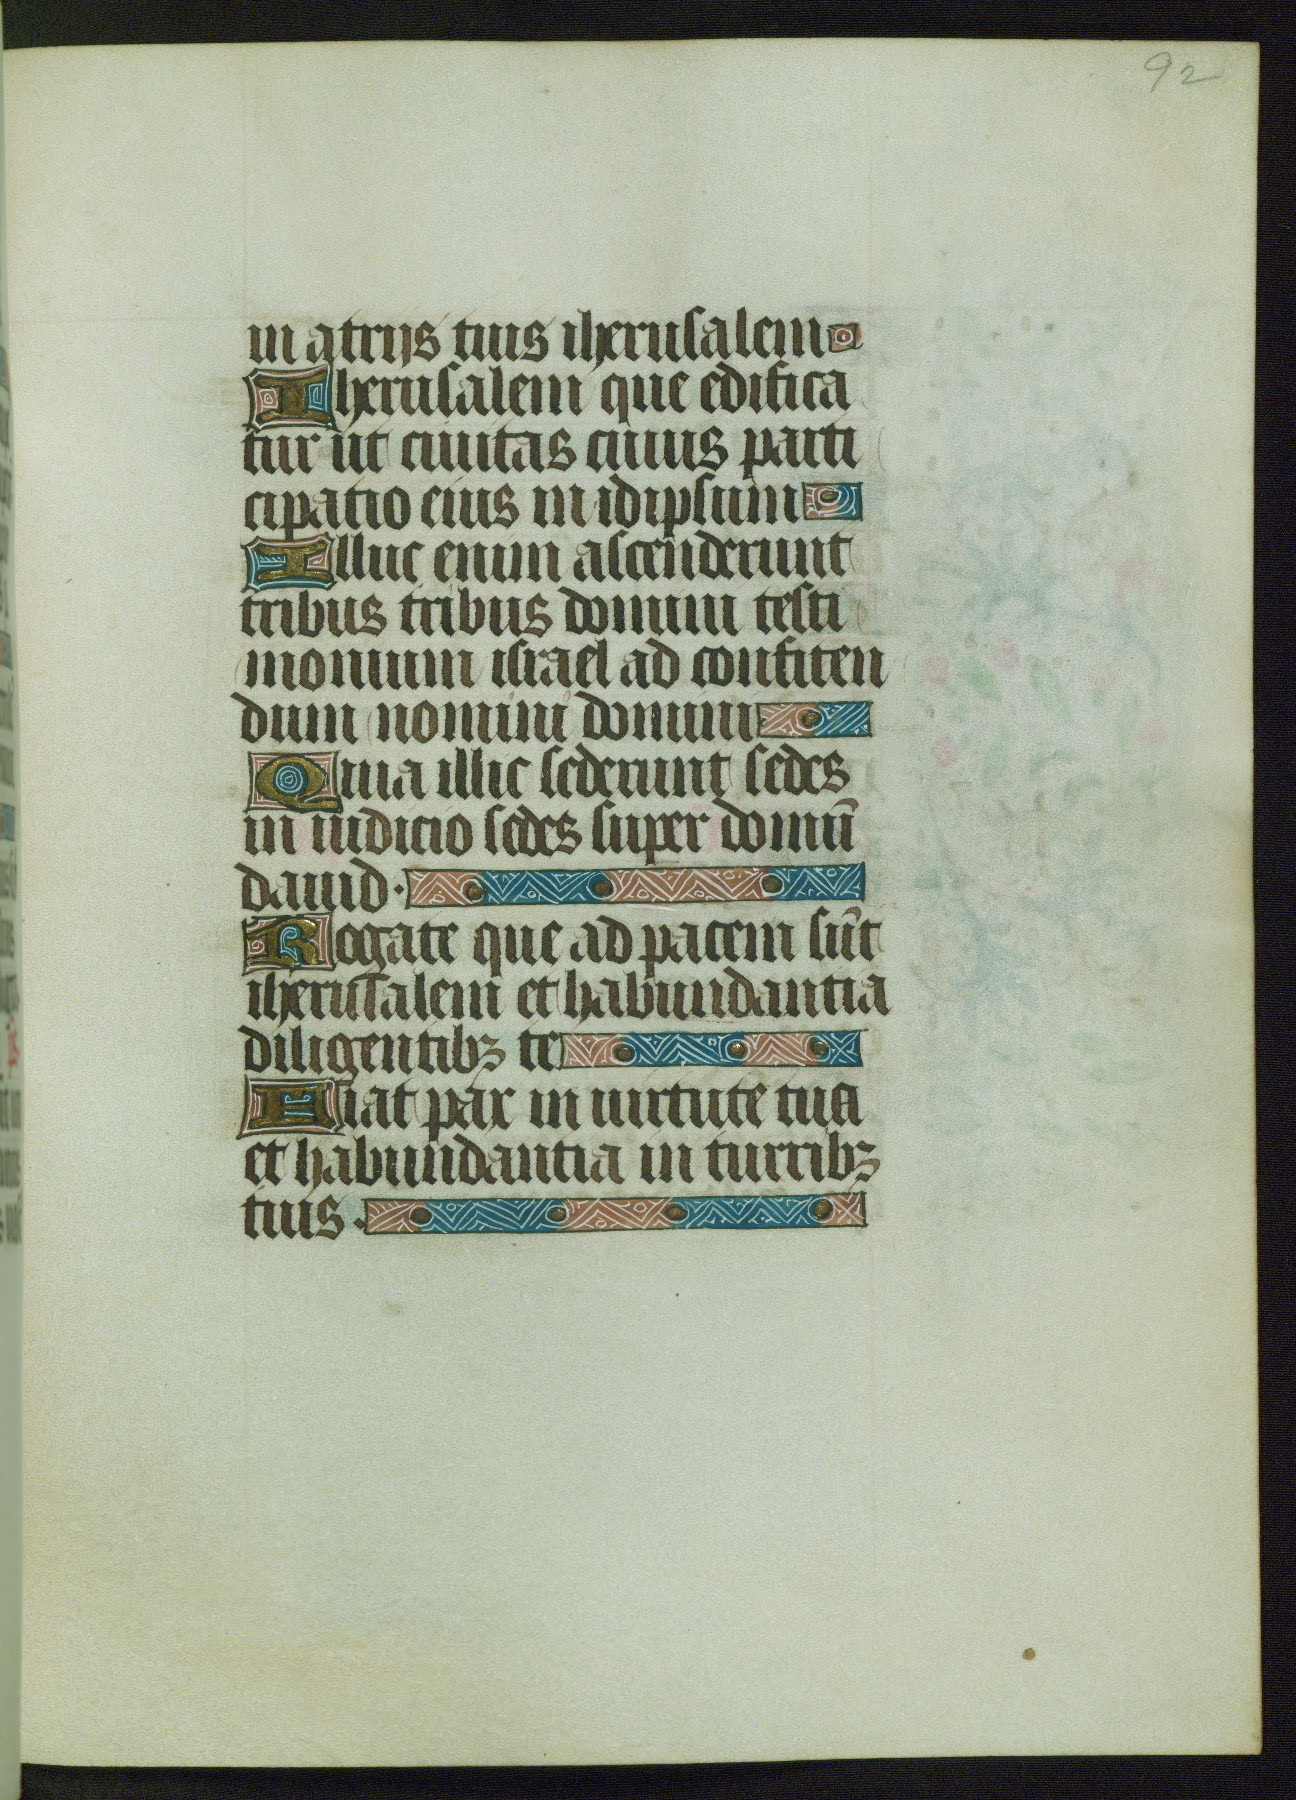 92
in atrijs tuis iherusalem
Iherusalem que edifica
tur ut ciuitas cuius parti
cipatio eius in idipsum
Illuc enim ascenderunt
tribus tribus domini testi
monium israel ad confiten
dum nomini domini
Quia illic sederunt sedes
in iudicio sedes super domū
dauid·
Rogate que ad pacem sūt
iherusalem et habundantia
diligentibꝫ te
Fiat pax in uirtute tua
et habundantia in turribꝫ
tuis·